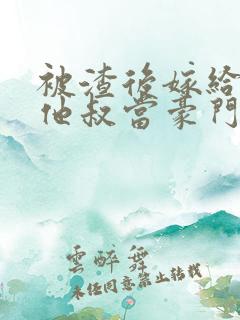 被渣後嫁給
他叔當豪門
雲醉舞
未经同意禁止转载